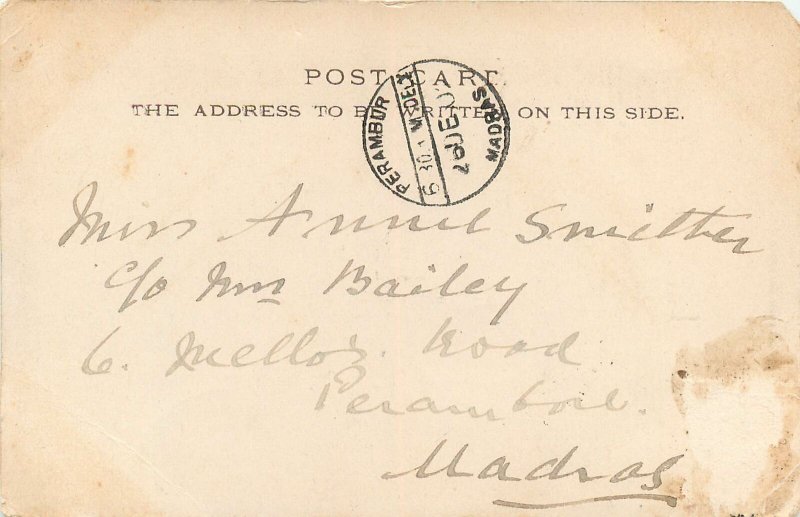 POST CARD.
THE ADDRESS TO BE WRITTEN ON THIS SIDE.
PERAMBUR
MADRAS
Miss Annie Smither
c/o Mrs Bailey
6. Mellor's Road
Perambore.
Madras